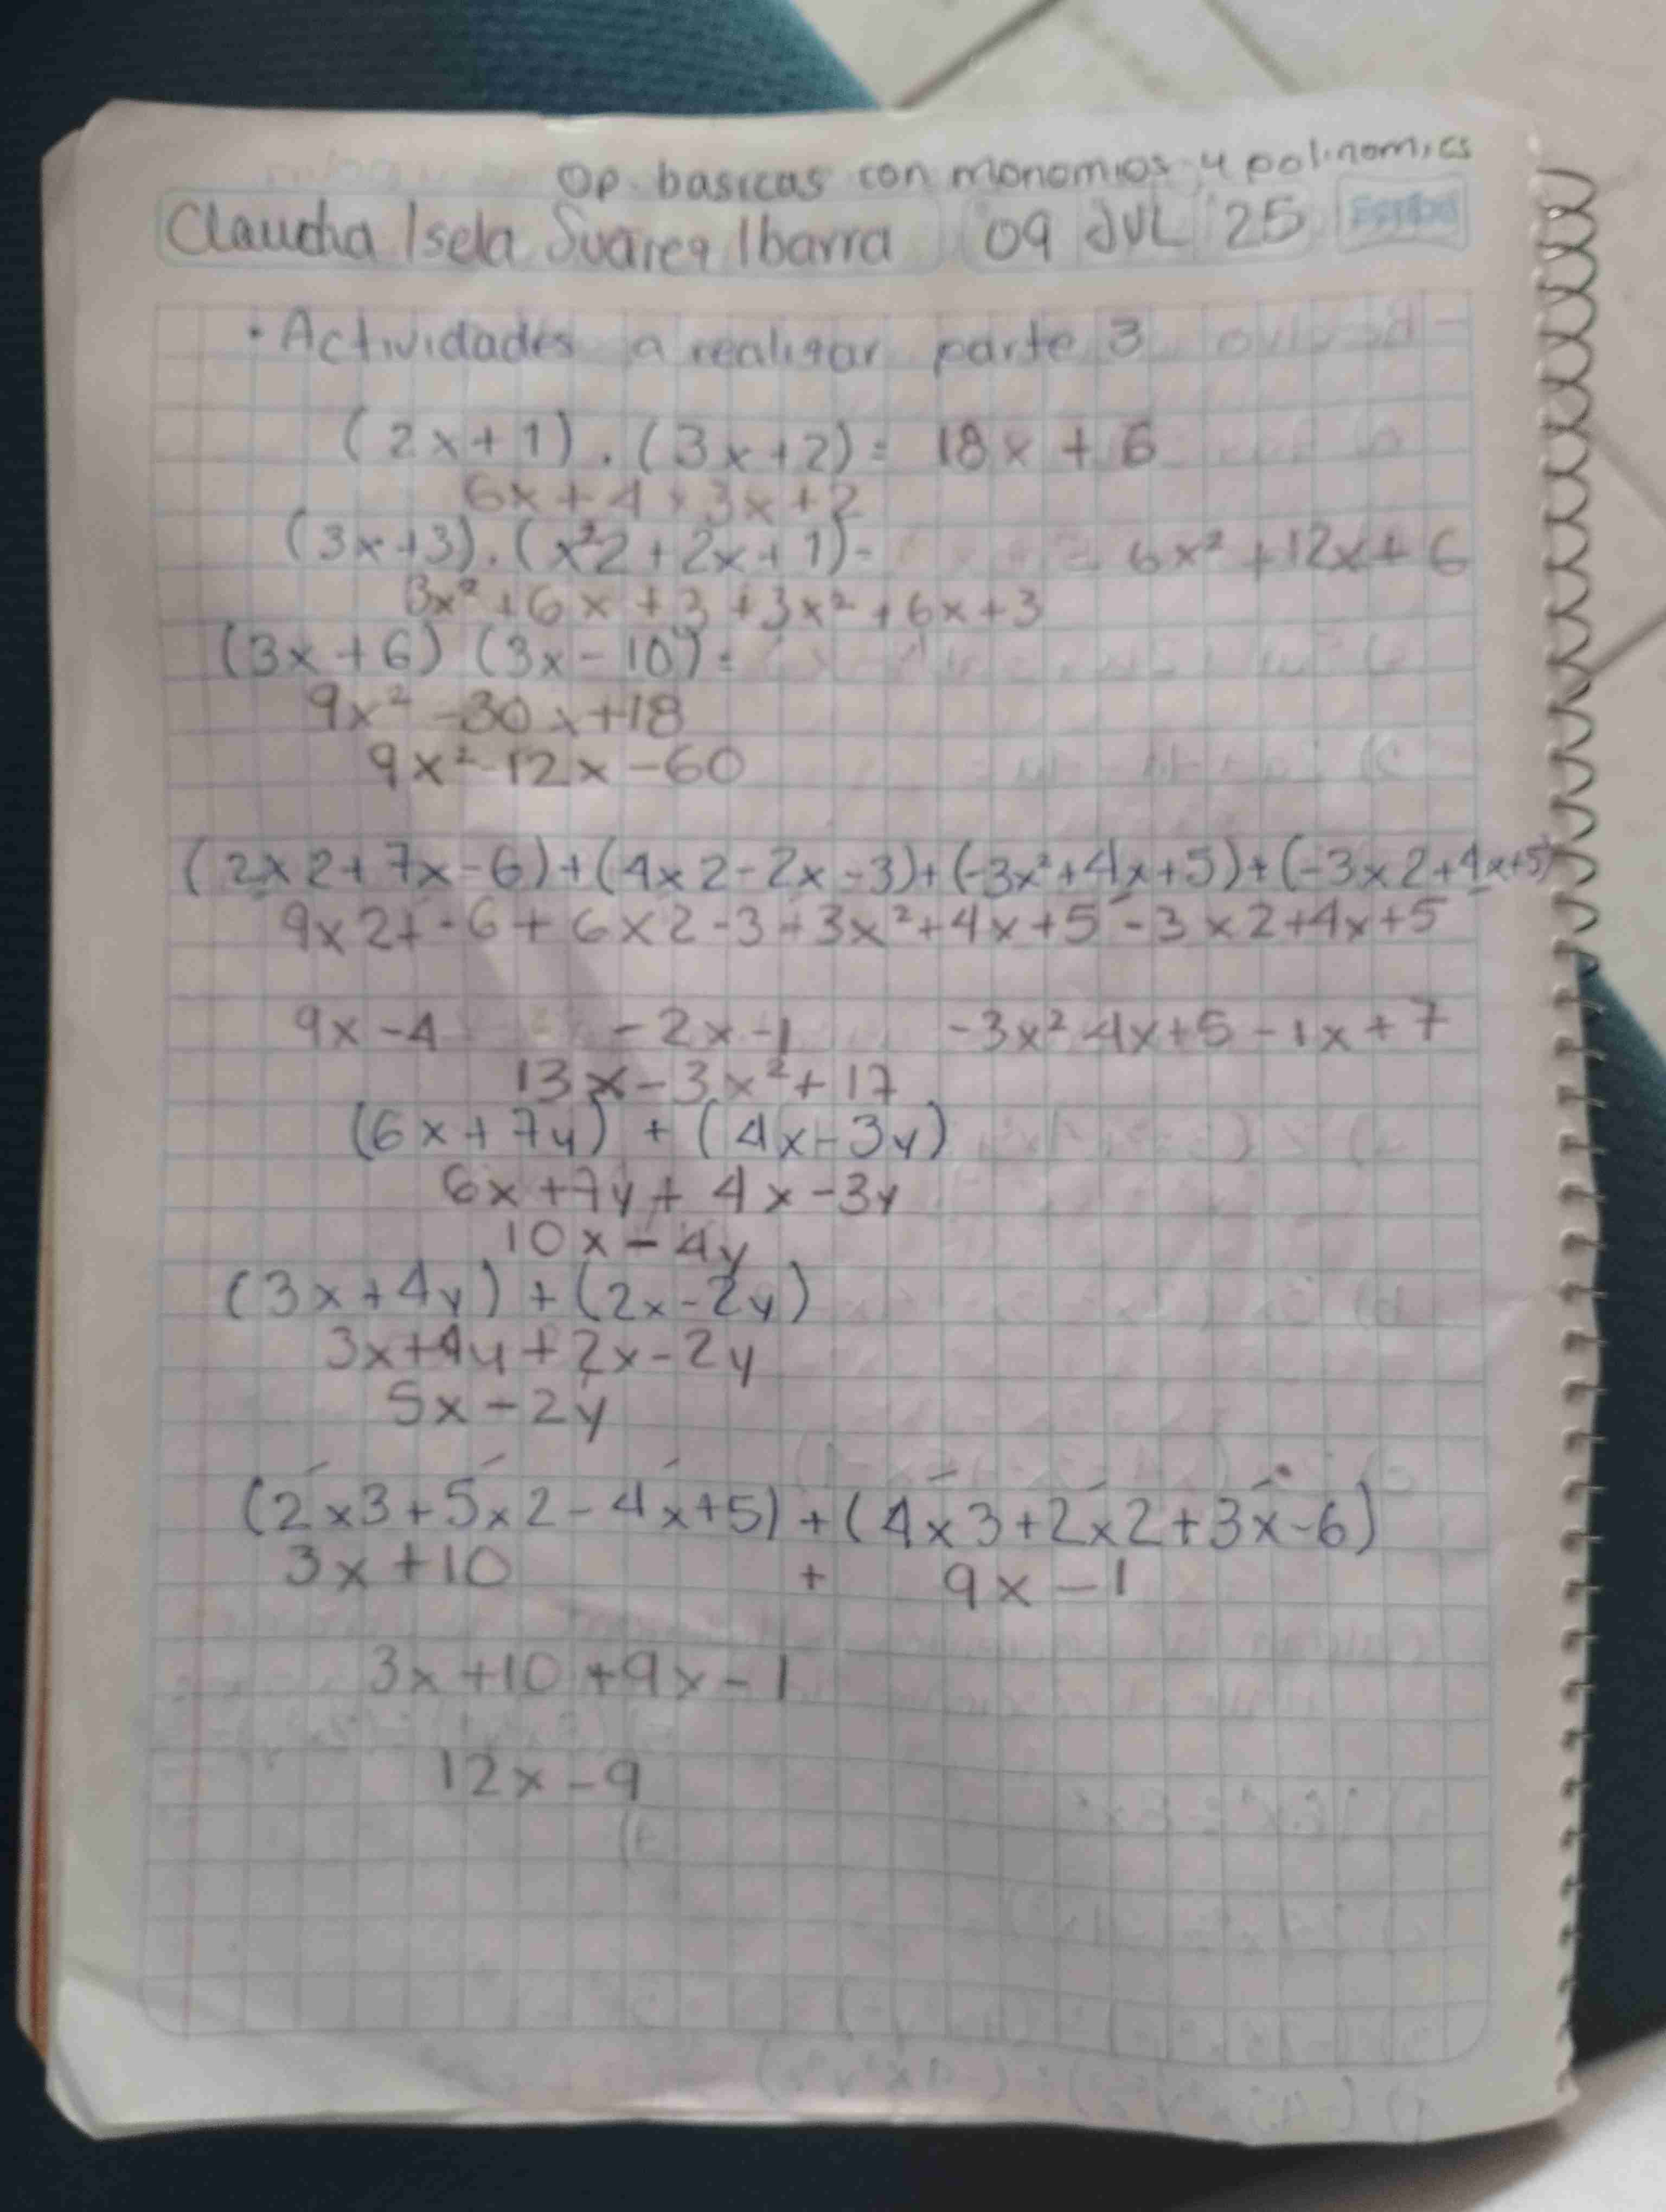 Op. basicas con monomios y polinomios
Claudia Isela Suarez Ibarra 09 JUL 25 Scribe
• Actividades a realizar parte 3
(2x+1).(3x+2)= 18x + 6
6x+4+3x+2
(3x+3).(x²2+2x+1)= = 6x²+12x+6
3x²+6x+3+3x²+6x+3
(3x+6)(3x-10)=
9x²-30x+18
9x²-12x-60
(2x2+7x-6)+(4x2-2x-3)+(-3x²+4x+5)+(-3x2+4x+5)
9x2+-6+6x2-3+3x²+4x+5-3x2+4x+5
9x-4 -2x-1 -3x² 4x+5-1x+7
13x-3x²+17
(6x+7y) + (4x-3y)
6x+7y+4x-3y
10x-4y
(3x+4y)+(2x-2y)
3x+4y+2x-2y
5x-2y
(2x3+5x2-4x+5)+(4x3+2x2+3x-6)
3x+10 + 9x-1
3x+10+9x-1
12x-9